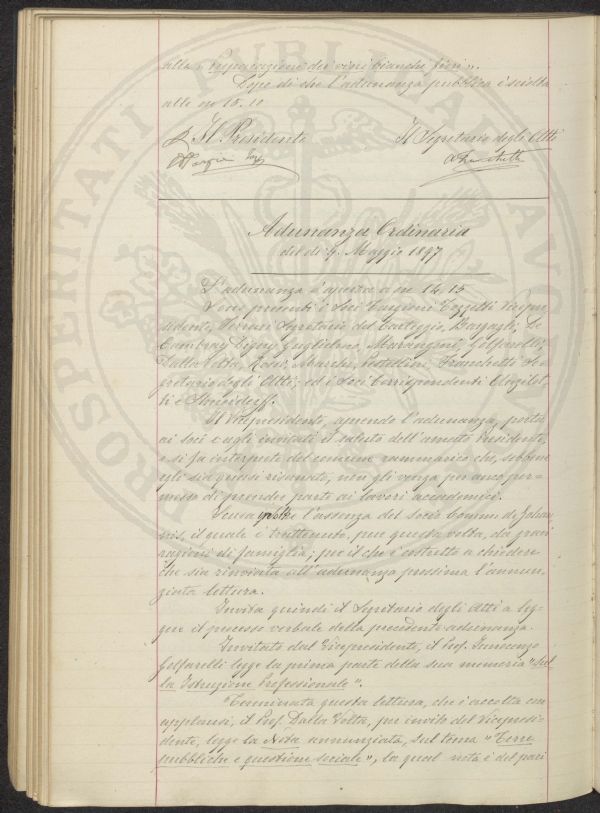 alla "Preparazione dei vini bianchi fini".
Dopo di che l'adunanza pubblica è sciolta
alle ore 15.10
Il Presidente Il Segretario degli Atti
Adunanza Ordinaria
del dì 9 Maggio 1897
L'adunanza è aperta a ore 14.15
Sono presenti i Soci Targioni Tozzetti Vicepre-
sidente, Ferrari Segretario del Carteggio, Bargagli, De
Cambray Digny Guglielmo, Marangoni, Golfarelli,
Dalla Volta, Rossi, Marchi, Franchetti Se-
gretario degli Atti; ed i Soci Corrispondenti
ti e
Il Vicepresidente, aprendo l'adunanza, porta
ai soci e agli invitati il saluto dell'amato Presidente,
e si fa interprete del comune rammarico che, sebbene
egli sia quasi risanato, non gli venga per anco per-
messo di prender parte ai lavori accademici.
Scusa l'assenza del socio Comm. de Johan-
nis, il quale è trattenuto, per questa volta, da gravi
ragioni di famiglia; per il che è costretto a chiedere
che sia rinviata all'adunanza prossima l'annun-
ziata lettura.
Invita quindi il Segretario degli Atti a leg-
gere il processo verbale della precedente adunanza.
Invitato dal Vicepresidente, il Prof. Innocenzo
Golfarelli legge la prima parte della sua memoria "Sul-
la Istruzione Professionale".
Terminata questa lettura, che è accolta con
applausi, il Prof. Dalla Volta, per invito del Vicepresi-
dente, legge la Nota annunziata, sul tema "Terre
pubbliche e questione sociale", la qual nota è del pari
PROSPERITATI PUBLICAE AUGENDAE